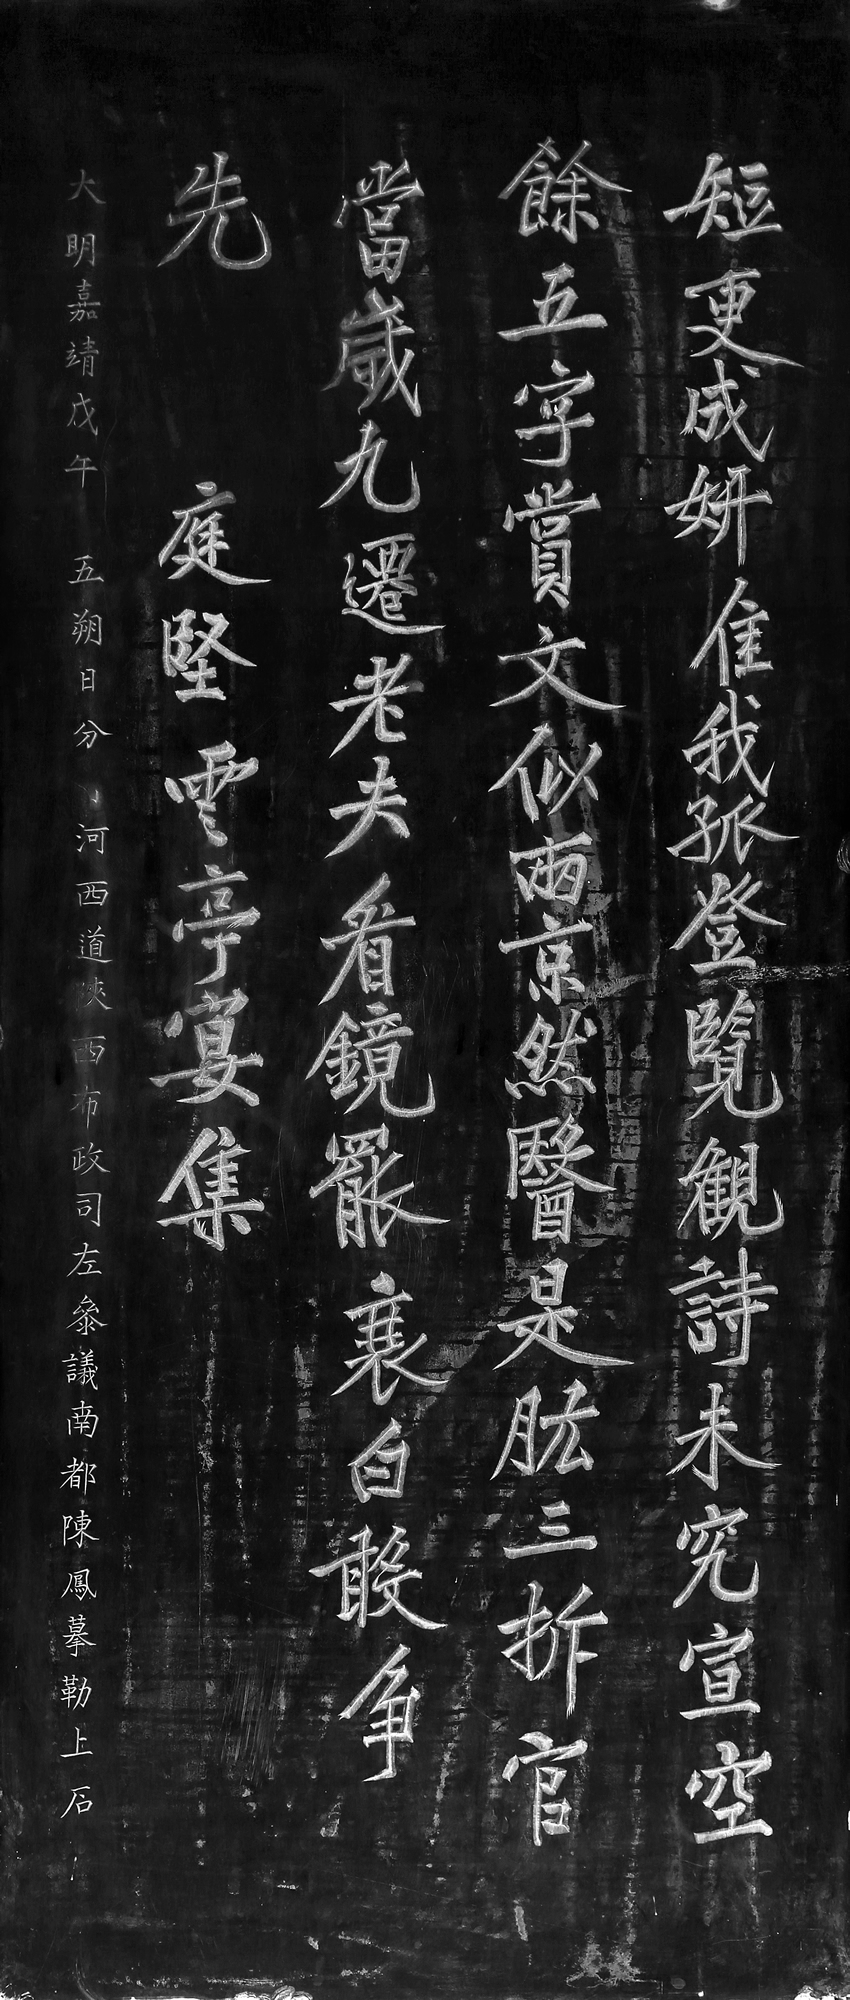 短更成妍惟我孤登覽觀詩未究宣空
餘五字賞文似兩京然醫是肱三折官
當歲九遷老夫看鏡罷衰白敢爭
先 庭堅雲亭宴集
大明嘉靖戊午 五朔日分 河西道陝西布政司左叅議南都陳鳳摹勒上石